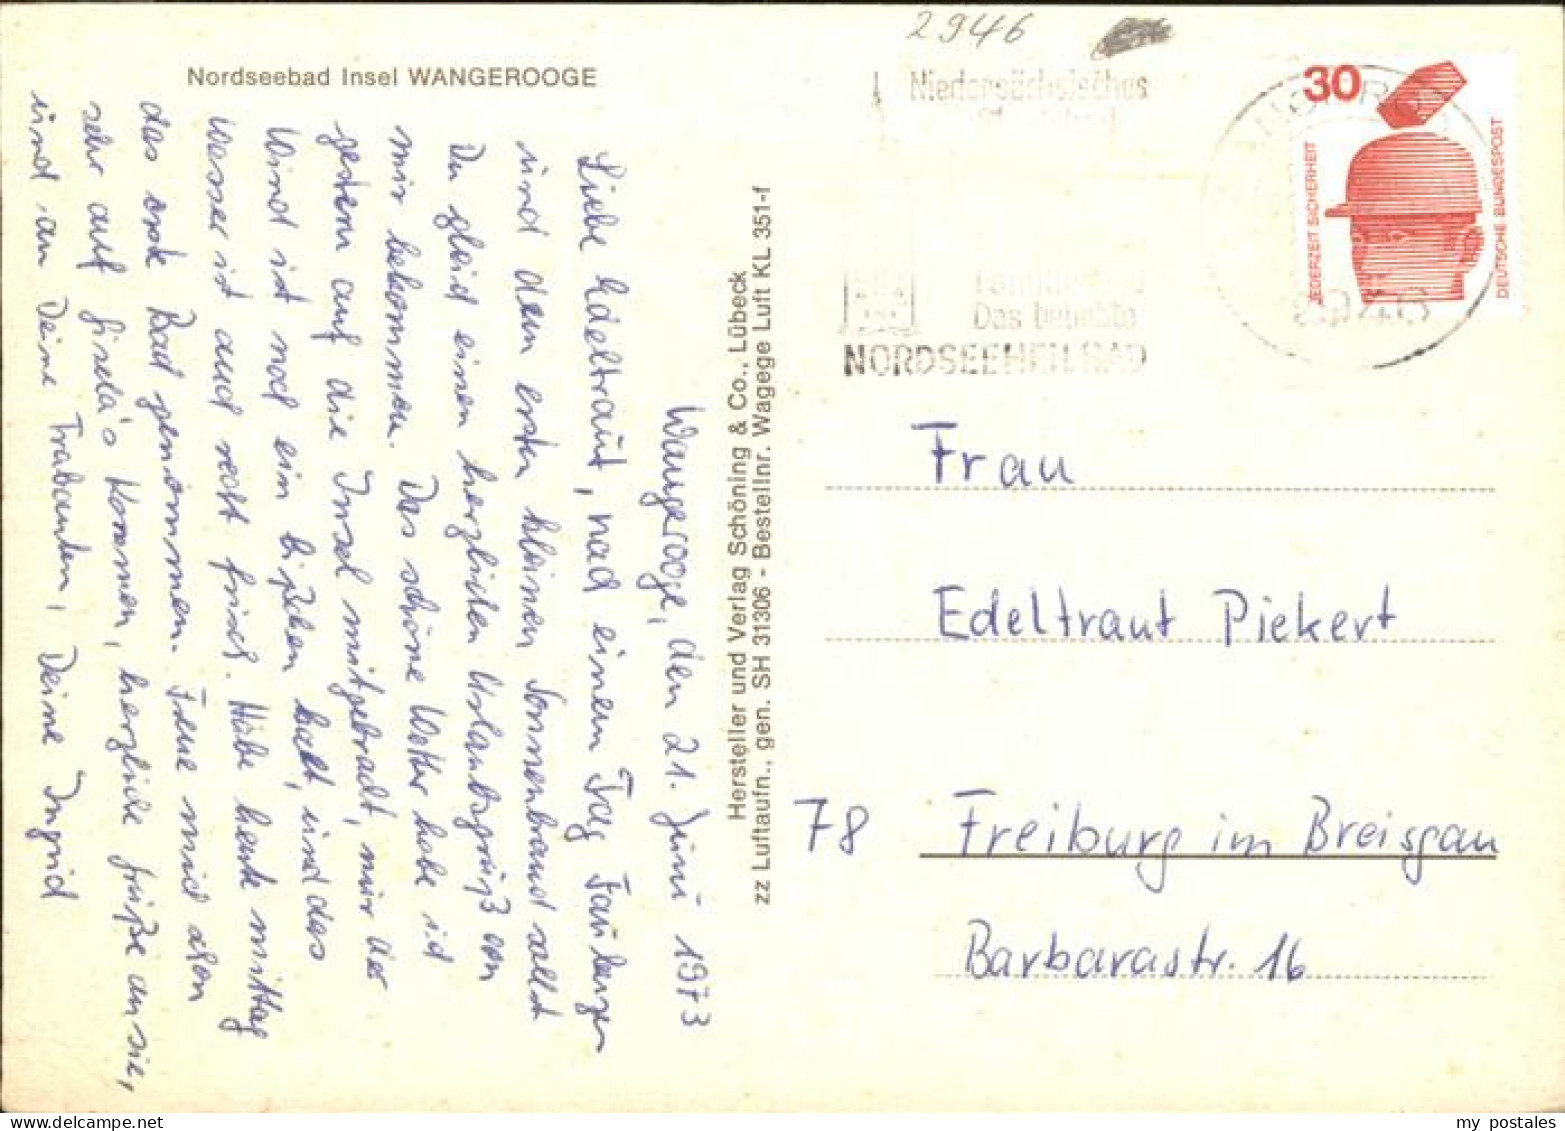 Nordseebad Insel WANGEROOGE
Wangerooge, den 21. Juni 1973
Liebe Edeltraut, nach einem Tag Faulenzen
und dem ersten kleinen Sonnenbrand sollst
Du gleich einen herzlichen Urlaubsgruß von
mir bekommen. Das schöne Wetter habe ich
gestern auf die Insel mitgebracht, nur der
Wind ist noch ein bißchen kalt, und das
Wasser ist auch recht frisch. Habe heute mittag
das erste Bad genommen. Freue mich schon
sehr auf Gisela's Kommen, herzliche Grüße an sie,
und an Deine Trabanten, Deine Ingrid
Hersteller und Verlag Schöning & Co., Lübeck
zz Luftaufn., gen. SH 31306 - Bestellnr. Wagege Luft KL 351-f
2946
Niedersächsisches
Das beliebte
NORDSEEHEILBAD
30
JEDERZEIT SICHERHEIT
DEUTSCHE BUNDESPOST
2946
Frau
Edeltraut Piekert
78 Freiburg im Breisgau
Barbarastr. 16
my postales